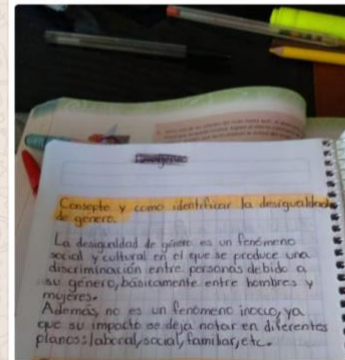 Consepto y como identificar la desigualdad
de género.
La desigualdad de género es un fenómeno
social y cultural en el que se produce una
discriminación entre personas debido a
su género, básicamente entre hombres y
mujeres.
Además, no es un fenómeno inocuo, ya
que su impacto se deja notar en diferentes
planos: laboral, social, familiar, etc.